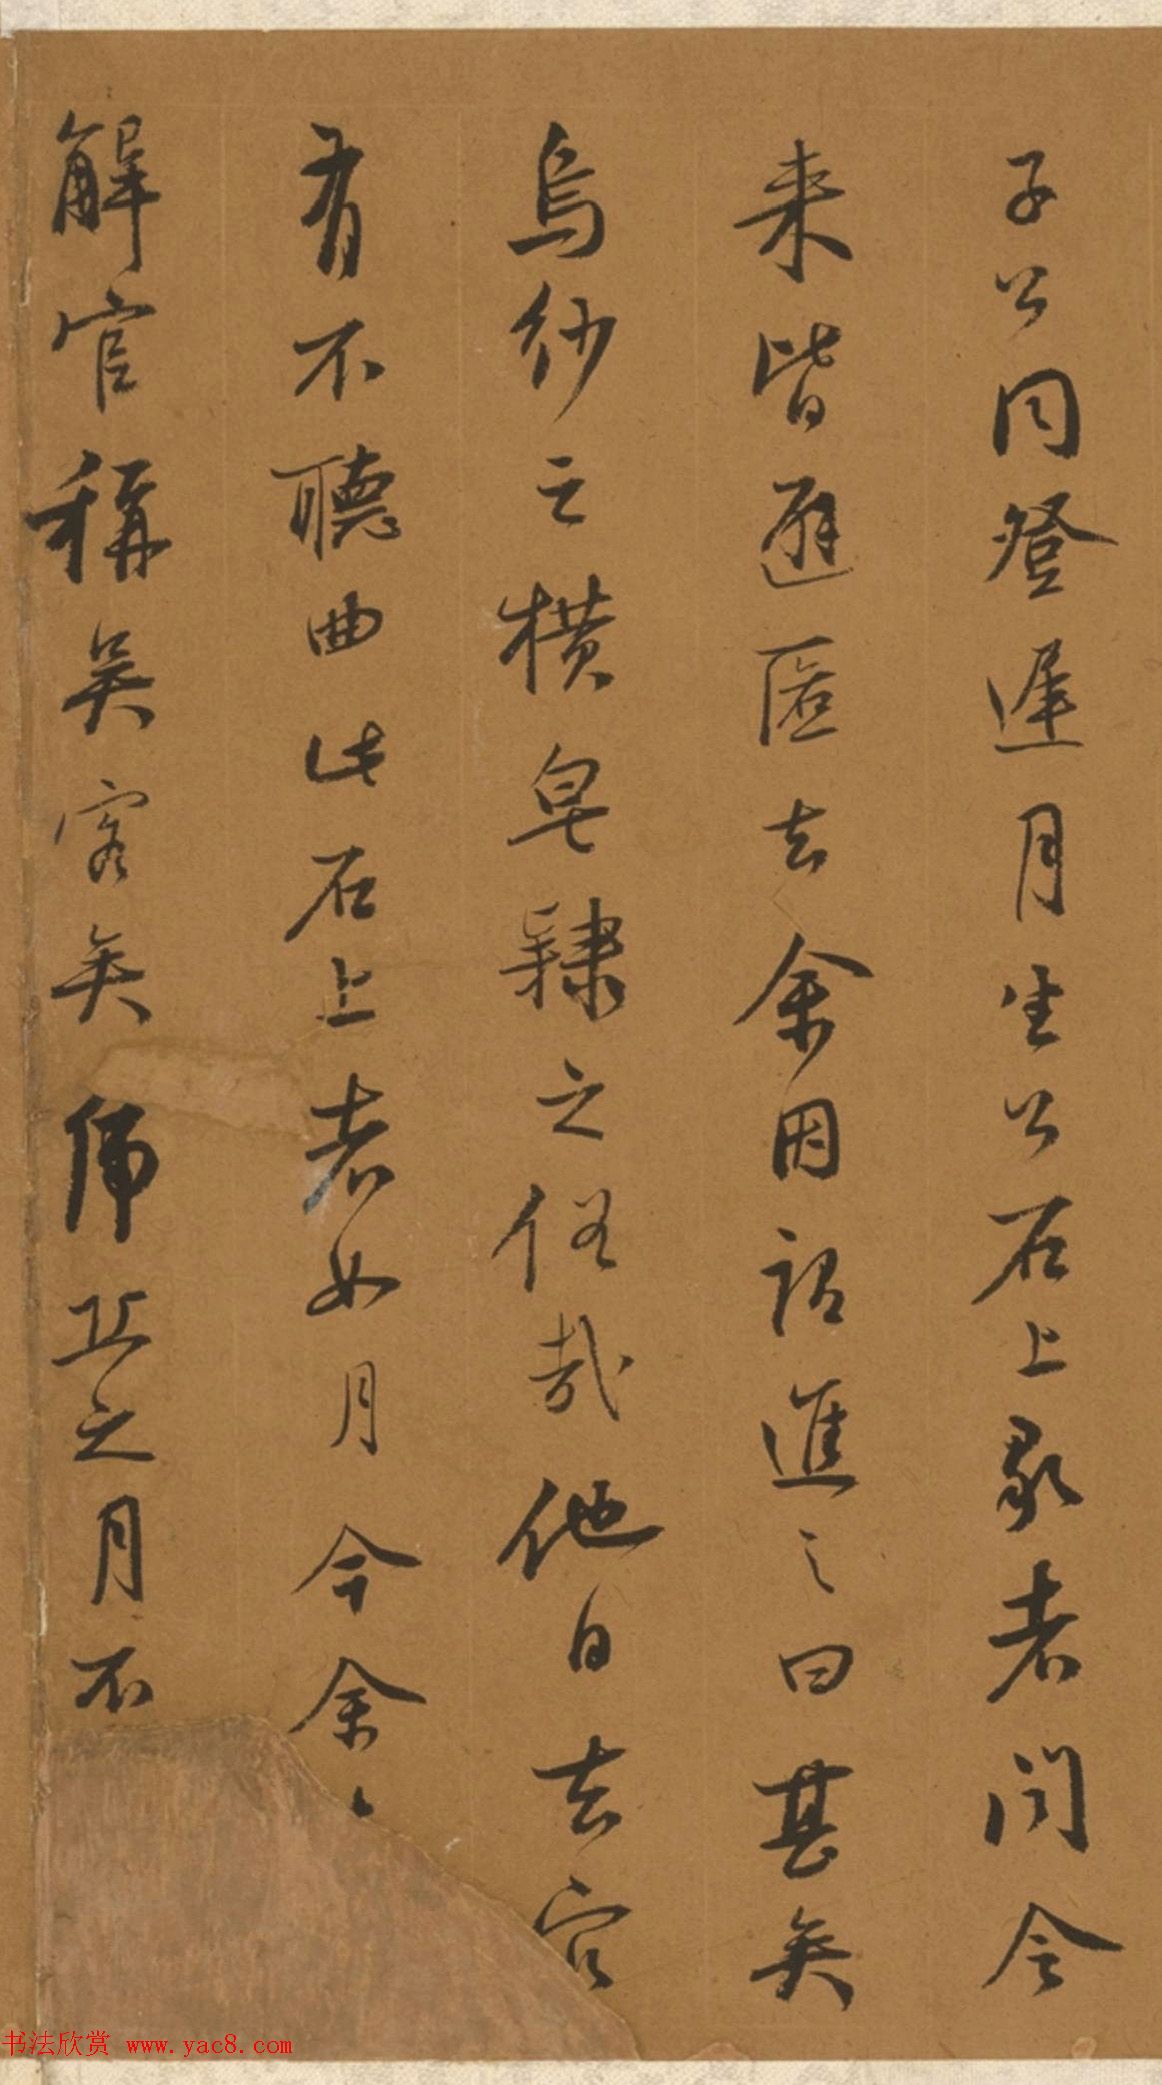 子公同登遲月生公石上歌者聞令
来皆避匿去余因詔進之曰甚矣
烏紗之橫皂隸之俗哉他日去官
有不聽曲此石上者如月今余
解官稱吳客矣虎丘之月不
书法欣赏 www.yac8.com